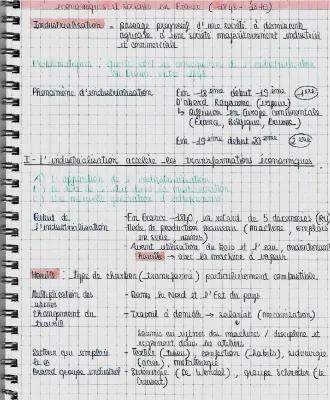 économiques et sociales en France (1848-1870)
Industrialisation = passage progressif d'une société à dominante
agricole à une société majoritairement industrielle
et commerciale
Problématiques : Quelles sont les conséquences de l'industrialisation
en France entre
Phénomène d'industrialisation
Fin -18ème début -19ème 1ère
D'abord Royaume (vapeur)
↳ diffusion en Europe continentale
(France, Belgique, Europe)
Fin -19ème début 20ème 2ème
I- L'industrialisation accélère les transformations économiques
A) L'apparition de l'industrialisation
B) Le rôle de l'état dans la
C) Une nouvelle génération d'entrepreneurs
Début de
l'industrialisation
- En France -1840, un retard de 5 décennies (RU)
- Mode de production nouveau (machine, emplois
en série, usines)
- Avant utilisation du bois et l'eau, maintenant
houille → avec la machine à vapeur
Houille : type de charbon (transformé) particulièrement combustible
Multiplication des
usines
- Dans le Nord et l'Est du pays
Changement du
travail
- Travail à domicile → salariat (mécanisation)
Soumis au rythme des machines / discipline et
règlement dans les ateliers
Secteur qui emploie
le
- Textile (tissu), confection (habits), sidérurgie
(acier), métallurgie
Grand groupe industriel
- Sidérurgie (De Wendel), groupe Schneider (le
Creusot)